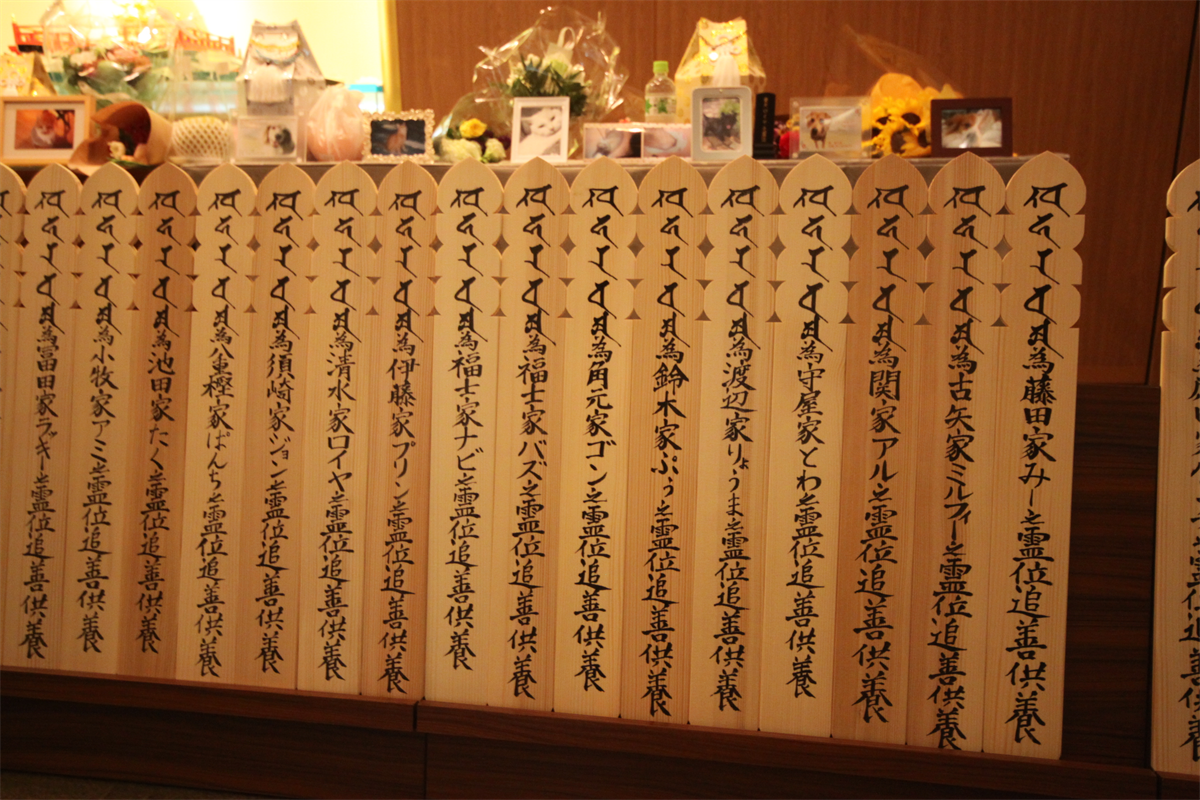 為藤田家みー之霊位追善供養
為古矢家ミルフィー之霊位追善供養
為関家アル之霊位追善供養
為守屋家とわ之霊位追善供養
為渡辺家りょうま之霊位追善供養
為鈴木家ぷぅ之霊位追善供養
為角元家ゴン之霊位追善供養
為福士家バズ之霊位追善供養
為福士家ナビ之霊位追善供養
為伊藤家プリン之霊位追善供養
為清水家ロイヤ之霊位追善供養
為須崎家ジョン之霊位追善供養
為八重樫家ぱんち之霊位追善供養
為池田家たく之霊位追善供養
為小牧家アミ之霊位追善供養
為冨田家ラッキー之霊位追善供養